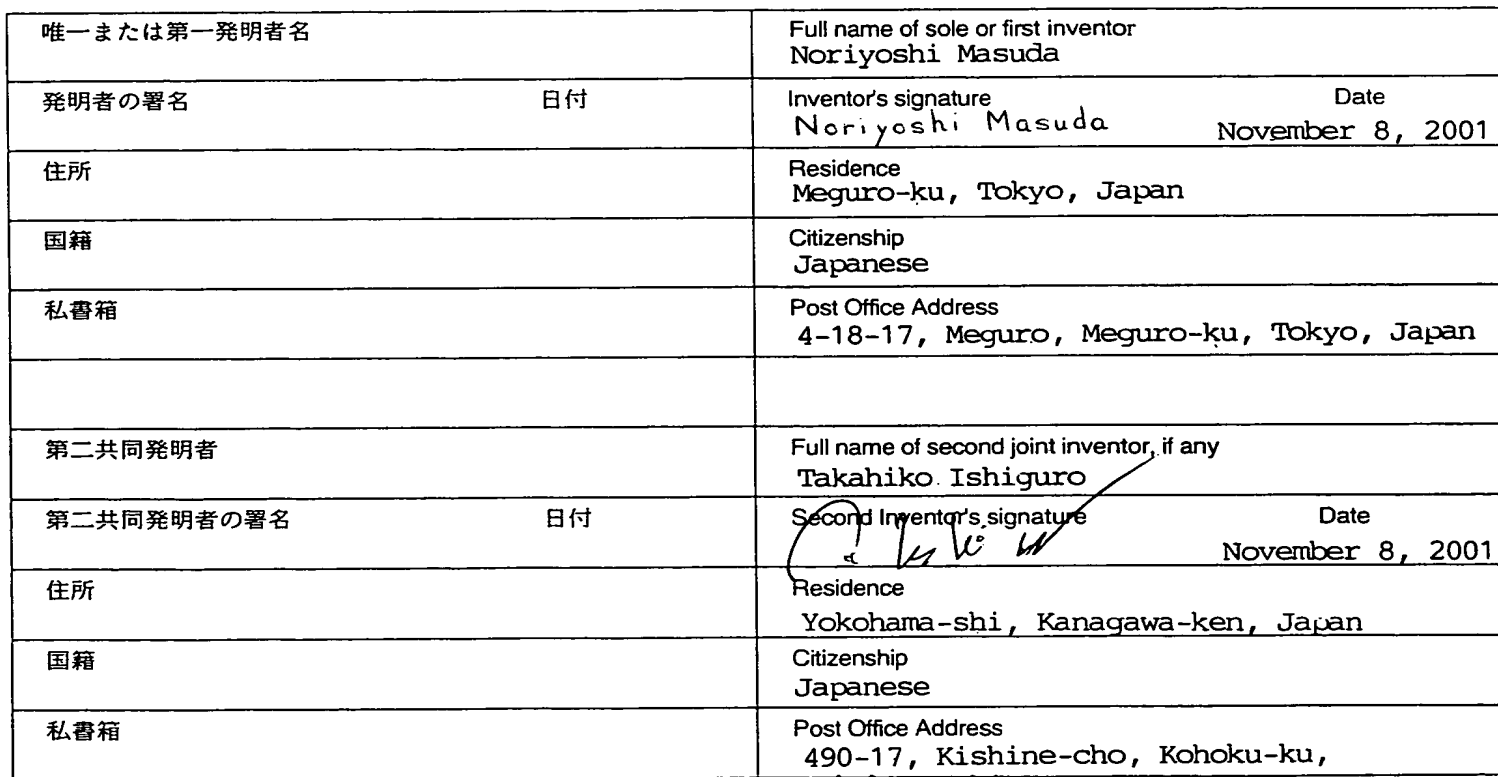 唯一または第一発明者名
Full name of sole or first inventor
Noriyoshi Masuda
発明者の署名 日付
Inventor's signature Date
Noriyoshi Masuda November 8, 2001
住所
Residence
Meguro-ku, Tokyo, Japan
国籍
Citizenship
Japanese
私書箱
Post Office Address
4-18-17, Meguro, Meguro-ku, Tokyo, Japan
第二共同発明者
Full name of second joint inventor, if any
Takahiko Ishiguro
第二共同発明者の署名 日付
Second Inventor's signature Date
November 8, 2001
住所
Residence
Yokohama-shi, Kanagawa-ken, Japan
国籍
Citizenship
Japanese
私書箱
Post Office Address
490-17, Kishine-cho, Kohoku-ku,